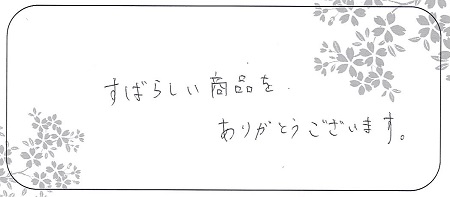 すばらしい商品を
ありがとうございます。